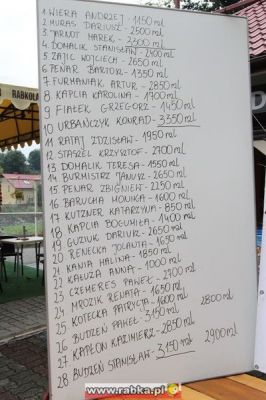 RABKOLA
1. WIERA ANDRZEJ - 1150 ml
2 MURAS DARIUSZ - 2500 ml
3. JARNOT MAREK - 2300 ml
4. DOMALIK STANISŁAW - 2400 ml
5. ZAJĄC WOJCIECH - 2650 ml
6. PENAR BARTOSZ - 1350 ml
7. FURMANIAK ARTUR - 2850 ml
8. KAPCIA KAROLINA - 1700 ml
9. FIAŁEK GRZEGORZ - 1450 ml
10. URBAŃCZYK KONRAD - 3350 ml
11. RATAJ ZDZISŁAW - 1950 ml
12. STASZEL KRZYSZTOF - 2700 ml
13 DOMALIK TERESA - 1550 ml
14 BURMISTRZ JANUSZ - 2650 ml
15 PENAR ZBIGNIEW - 2250 ml
16 BARUCHA MONIKA - 1600 ml
17 KUTZNER KATARZYNA - 850 ml
18 KAPCIA BOGUMIŁA - 1400 ml
19 GUZIUK DARIUSZ - 2650 ml
20 RENECKA JOLANTA - 1650 ml
21 KANIA HALINA - 1850 ml
22 KAŁUŻA ANNA - 1000 ml
23 CZEMERES PAWEŁ - 2700 ml
24 MROZIK RENATA - 1650 ml
25 KOTECKA PATRYCJA - 1600 ml 2800 ml
26 BUDZEŃ PAWEŁ - 3150 ml
27 KAPŁON KAZIMIERZ - 2850 ml
28 BUDZEŃ STANISŁAW - 3150 ml 2900 ml
www.rabka.pl